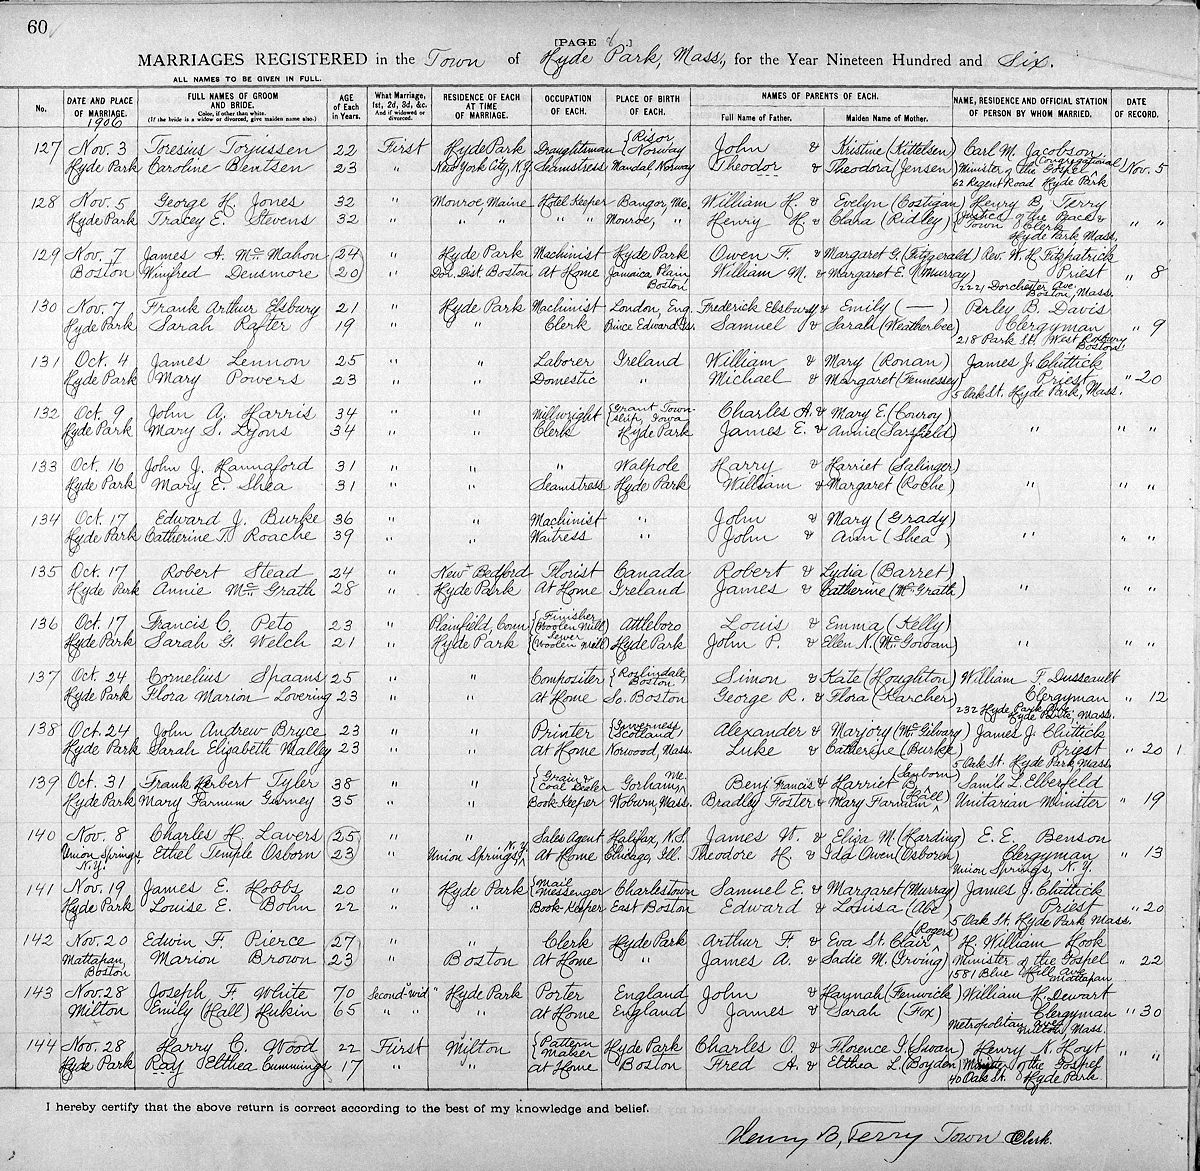 60
[PAGE ]
MARRIAGES REGISTERED in the Town of Hyde Park, Mass., for the Year Nineteen Hundred and Six.
ALL NAMES TO BE GIVEN IN FULL.
No. DATE AND PLACE OF MARRIAGE. FULL NAMES OF GROOM AND BRIDE. Color, if other than white. (If the bride is a widow or divorced, give maiden name also.) AGE of Each in Years. What Marriage, 1st, 2d, 3d, &c. And if widowed or divorced. RESIDENCE OF EACH AT TIME OF MARRIAGE. OCCUPATION OF EACH. PLACE OF BIRTH OF EACH. NAMES OF PARENTS OF EACH. Full Name of Father. Maiden Name of Mother. NAME, RESIDENCE AND OFFICIAL STATION OF PERSON BY WHOM MARRIED. DATE OF RECORD.
1906
127 Nov. 3 Toresius Torjussen 22 First Hyde Park Draughtsman {Risor Norway John & Kristine (Kittelsen) Carl M. Jacobson
Hyde Park Caroline Bentsen 23 " New York City, N.Y. Seamstress Mandal Norway Theodor & Theodora (Jensen) Minister of the Gospel (Congregational) Nov. 5
62 Regent Road Hyde Park
128 Nov. 5 George H. Jones 32 " Monroe, Maine Hotel Keeper Bangor, Me. William H. & Evelyn (Costigan) Henry B. Terry
Hyde Park Tracey E. Stevens 32 " " " " " Monroe, " Henry H. & Clara (Ridley) {Justice of the Peace & Town Clerk " "
Hyde Park Mass.
129 Nov. 7 James A. McMahon 24 " Hyde Park Machinist Hyde Park Owen F. & Margaret G. (Fitzgerald) Rev. W. H. Fitzpatrick
Boston Winifred Densmore 20 " Dor. Dist. Boston At Home Jamaica Plain Boston William M. & Margaret E. (Murray) Priest " 8
2221 Dorchester Ave. Boston, Mass.
130 Nov. 7 Frank Arthur Elsbury 21 " Hyde Park Machinist London, Eng. Frederick Elsbury & Emily ( — ) Perley B. Davis
Hyde Park Sarah Rafter 19 " " Clerk Prince Edward Is. Samuel & Sarah (Weatherbee) Clergyman " 9
218 Park St. West Roxbury Boston
131 Oct. 4 James Lennon 25 " " Laborer Ireland William & Mary (Ronan) James J. Chittick
Hyde Park Mary Powers 23 " " Domestic " Michael & Margaret (Fennessey) Priest " 20
5 Oak St. Hyde Park, Mass.
132 Oct. 9 John A. Harris 34 " " Millwright {Grant Township, Iowa Charles A. & Mary E. (Conroy)
Hyde Park Mary S. Lyons 34 " " Clerk Hyde Park James E. & Annie (Sarsfield) " " "
133 Oct. 16 John J. Hannaford 31 " " " Walpole Harry & Harriet (Salinger)
Hyde Park Mary E. Shea 31 " " Seamstress Hyde Park William & Margaret (Roche) " " "
134 Oct. 17 Edward J. Burke 36 " " Machinist " John & Mary (Grady)
Hyde Park Catherine T. Roache 39 " " Waitress " John & Ann (Shea) " " "
135 Oct. 17 Robert Stead 24 " New Bedford Florist Canada Robert & Lydia (Barret)
Hyde Park Annie McGrath 28 " Hyde Park At Home Ireland James & Catherine (McGrath) " " "
136 Oct. 17 Francis C. Peto 23 " Plainfield, Conn {Finisher Woolen Mill Attleboro Louis & Emma (Kelly)
Hyde Park Sarah G. Welch 21 " Hyde Park {Sewer Woolen Mill Hyde Park John P. & Ellen N. (McGowan) " " "
137 Oct. 24 Cornelius Spaans 25 " " Compositer {Roslindale, Boston Simon & Kate (Houghton) William T. Dusseault
Hyde Park Flora Marion Lovering 23 " " At Home So. Boston George R. & Flora (Karcher) Clergyman " 12
232 Hyde Park Ave. Hyde Park, Mass.
138 Oct. 24 John Andrew Bryce 23 " " Printer {Inverness Scotland Alexander & Marjory (McGilvary) James J. Chittick
Hyde Park Sarah Elizabeth Malley 23 " " At Home Norwood, Mass. Luke & Catherine (Burke) Priest " 20 1
5 Oak St. Hyde Park, Mass.
139 Oct. 31 Frank Herbert Tyler 38 " " {Grain & Coal Dealer Gorham, Me. Benj. Francis & Harriet B. (Sanborn) Saml. L. Elberfeld
Hyde Park Mary Farnum Gurney 35 " " Book Keeper Woburn, Mass. Bradley Foster & Mary Farnum (Hall) Unitarian Minister " 19
140 Nov. 8 Charles H. Lavers 25 " " Sales Agent Halifax, N.S. James W. & Eliza M. (Harding) E. E. Benson
Union Springs N.Y. Ethel Temple Osborn 23 " Union Springs, N.Y. At Home Chicago, Ill. Theodore H. & Ida Owen (Osboren) Clergyman " 13
Union Springs, N.Y.
141 Nov. 19 James E. Hobbs 20 " Hyde Park {Mail Messenger Charlestown Samuel E. & Margaret (Murray) James J. Chittick
Hyde Park Louise E. Bohn 22 " " Book Keeper East Boston Edward & Louisa (Abe) Priest " 20
5 Oak St. Hyde Park Mass.
142 Nov. 20 Edwin F. Pierce 27 " " Clerk Hyde Park Arthur F. & Eva St. Clair (Rogers) H. William Hook
Mattapan, Boston Marion Brown 23 " Boston At Home " James A. & Sadie M. (Irving) Minister of the Gospel " 22
1581 Blue Hill Ave. Mattapan
143 Nov. 28 Joseph F. White 70 Second-wid " Hyde Park Porter England John & Hannah (Fenwick) William H. Dewart
Milton Emily (Hall) Hukin 65 " " " At Home England James & Sarah (Fox) Clergyman " 30
Metropolitan Ave. Milton, Mass.
144 Nov. 28 Harry C. Wood 22 First Milton {Pattern Maker Hyde Park Charles O. & Florence I. (Swan) Henry N. Hoyt
Hyde Park Ray Elthea Cummings 17 " " At Home Boston Fred A. & Elthea L. (Boyden) Minister of the Gospel " "
40 Oak St. Hyde Park
I hereby certify that the above return is correct according to the best of my knowledge and belief.
Henry B. Terry Town Clerk.